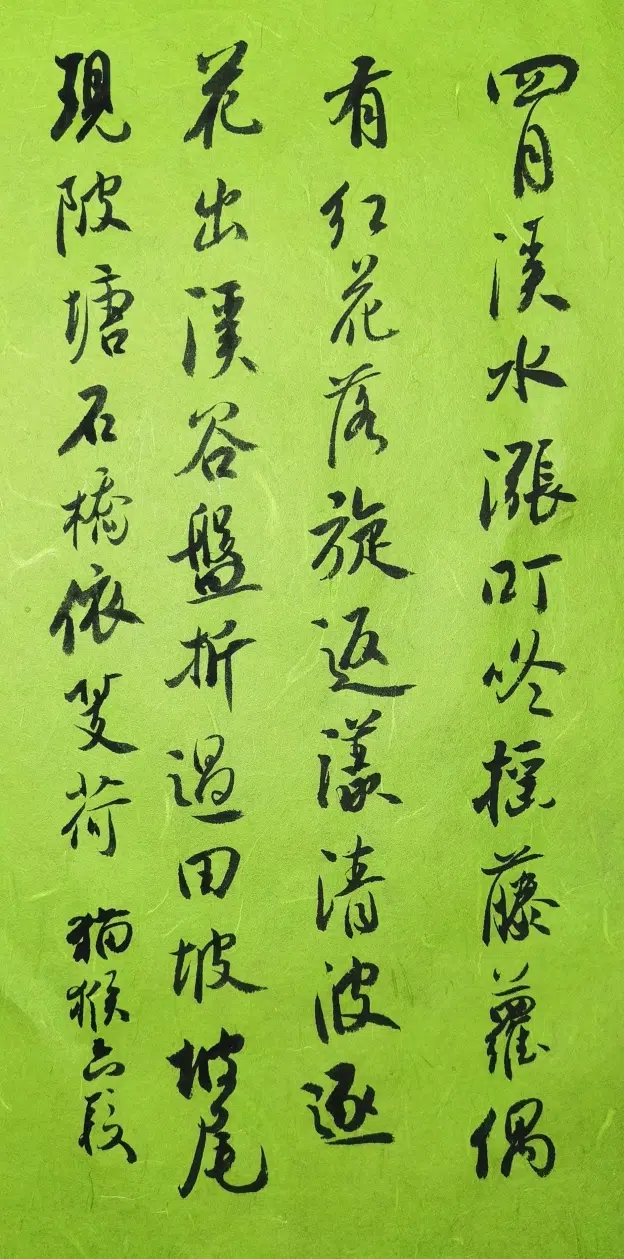 四月溪水漲叮咚摇藤蘿偶
有红花落旋返漾清波逐
花出溪谷盤折過田坡坡尾
現陂塘石橋依芰荷
猫猴六段